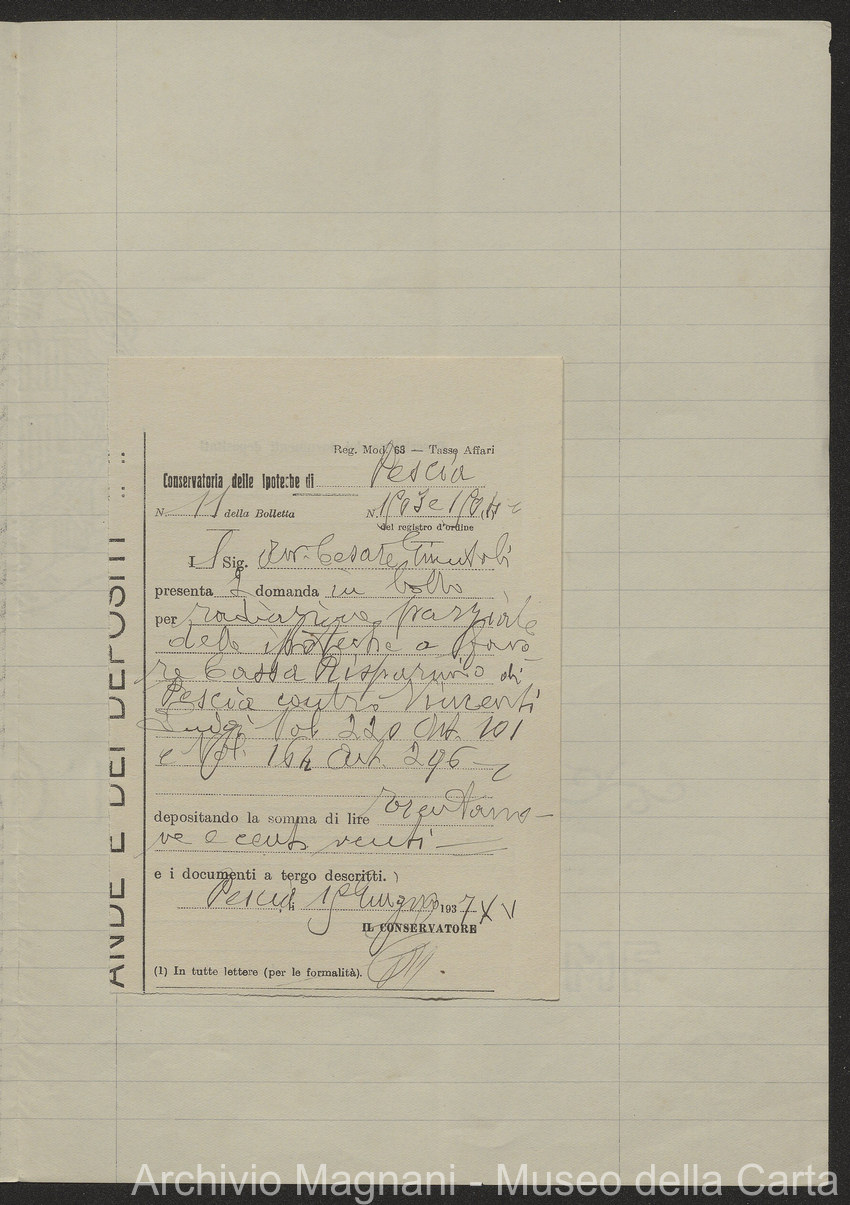 Reg. Mod. 68 — Tasse Affari
Conservatoria delle Ipoteche di Pescia
N. 11 della Bolletta N.
del registro d'ordine
I Sig. Avv. Cesare
presenta 2 domanda in bollo
per radiazione parziale
delle ipoteche a favo
re Cassa Risparmio di
Pescia contro Vincenti
Luigi Vol. 220 Art. 101
e Vol. 164 Art. 296
depositando la somma di lire
ve e cent. venti —
e i documenti a tergo descritti.
Pescia, li Giugno 1937 XV
IL CONSERVATORE
(1) In tutte lettere (per le formalità).
ANDE E DEI DEPOSITI
Archivio Magnani - Museo della Carta